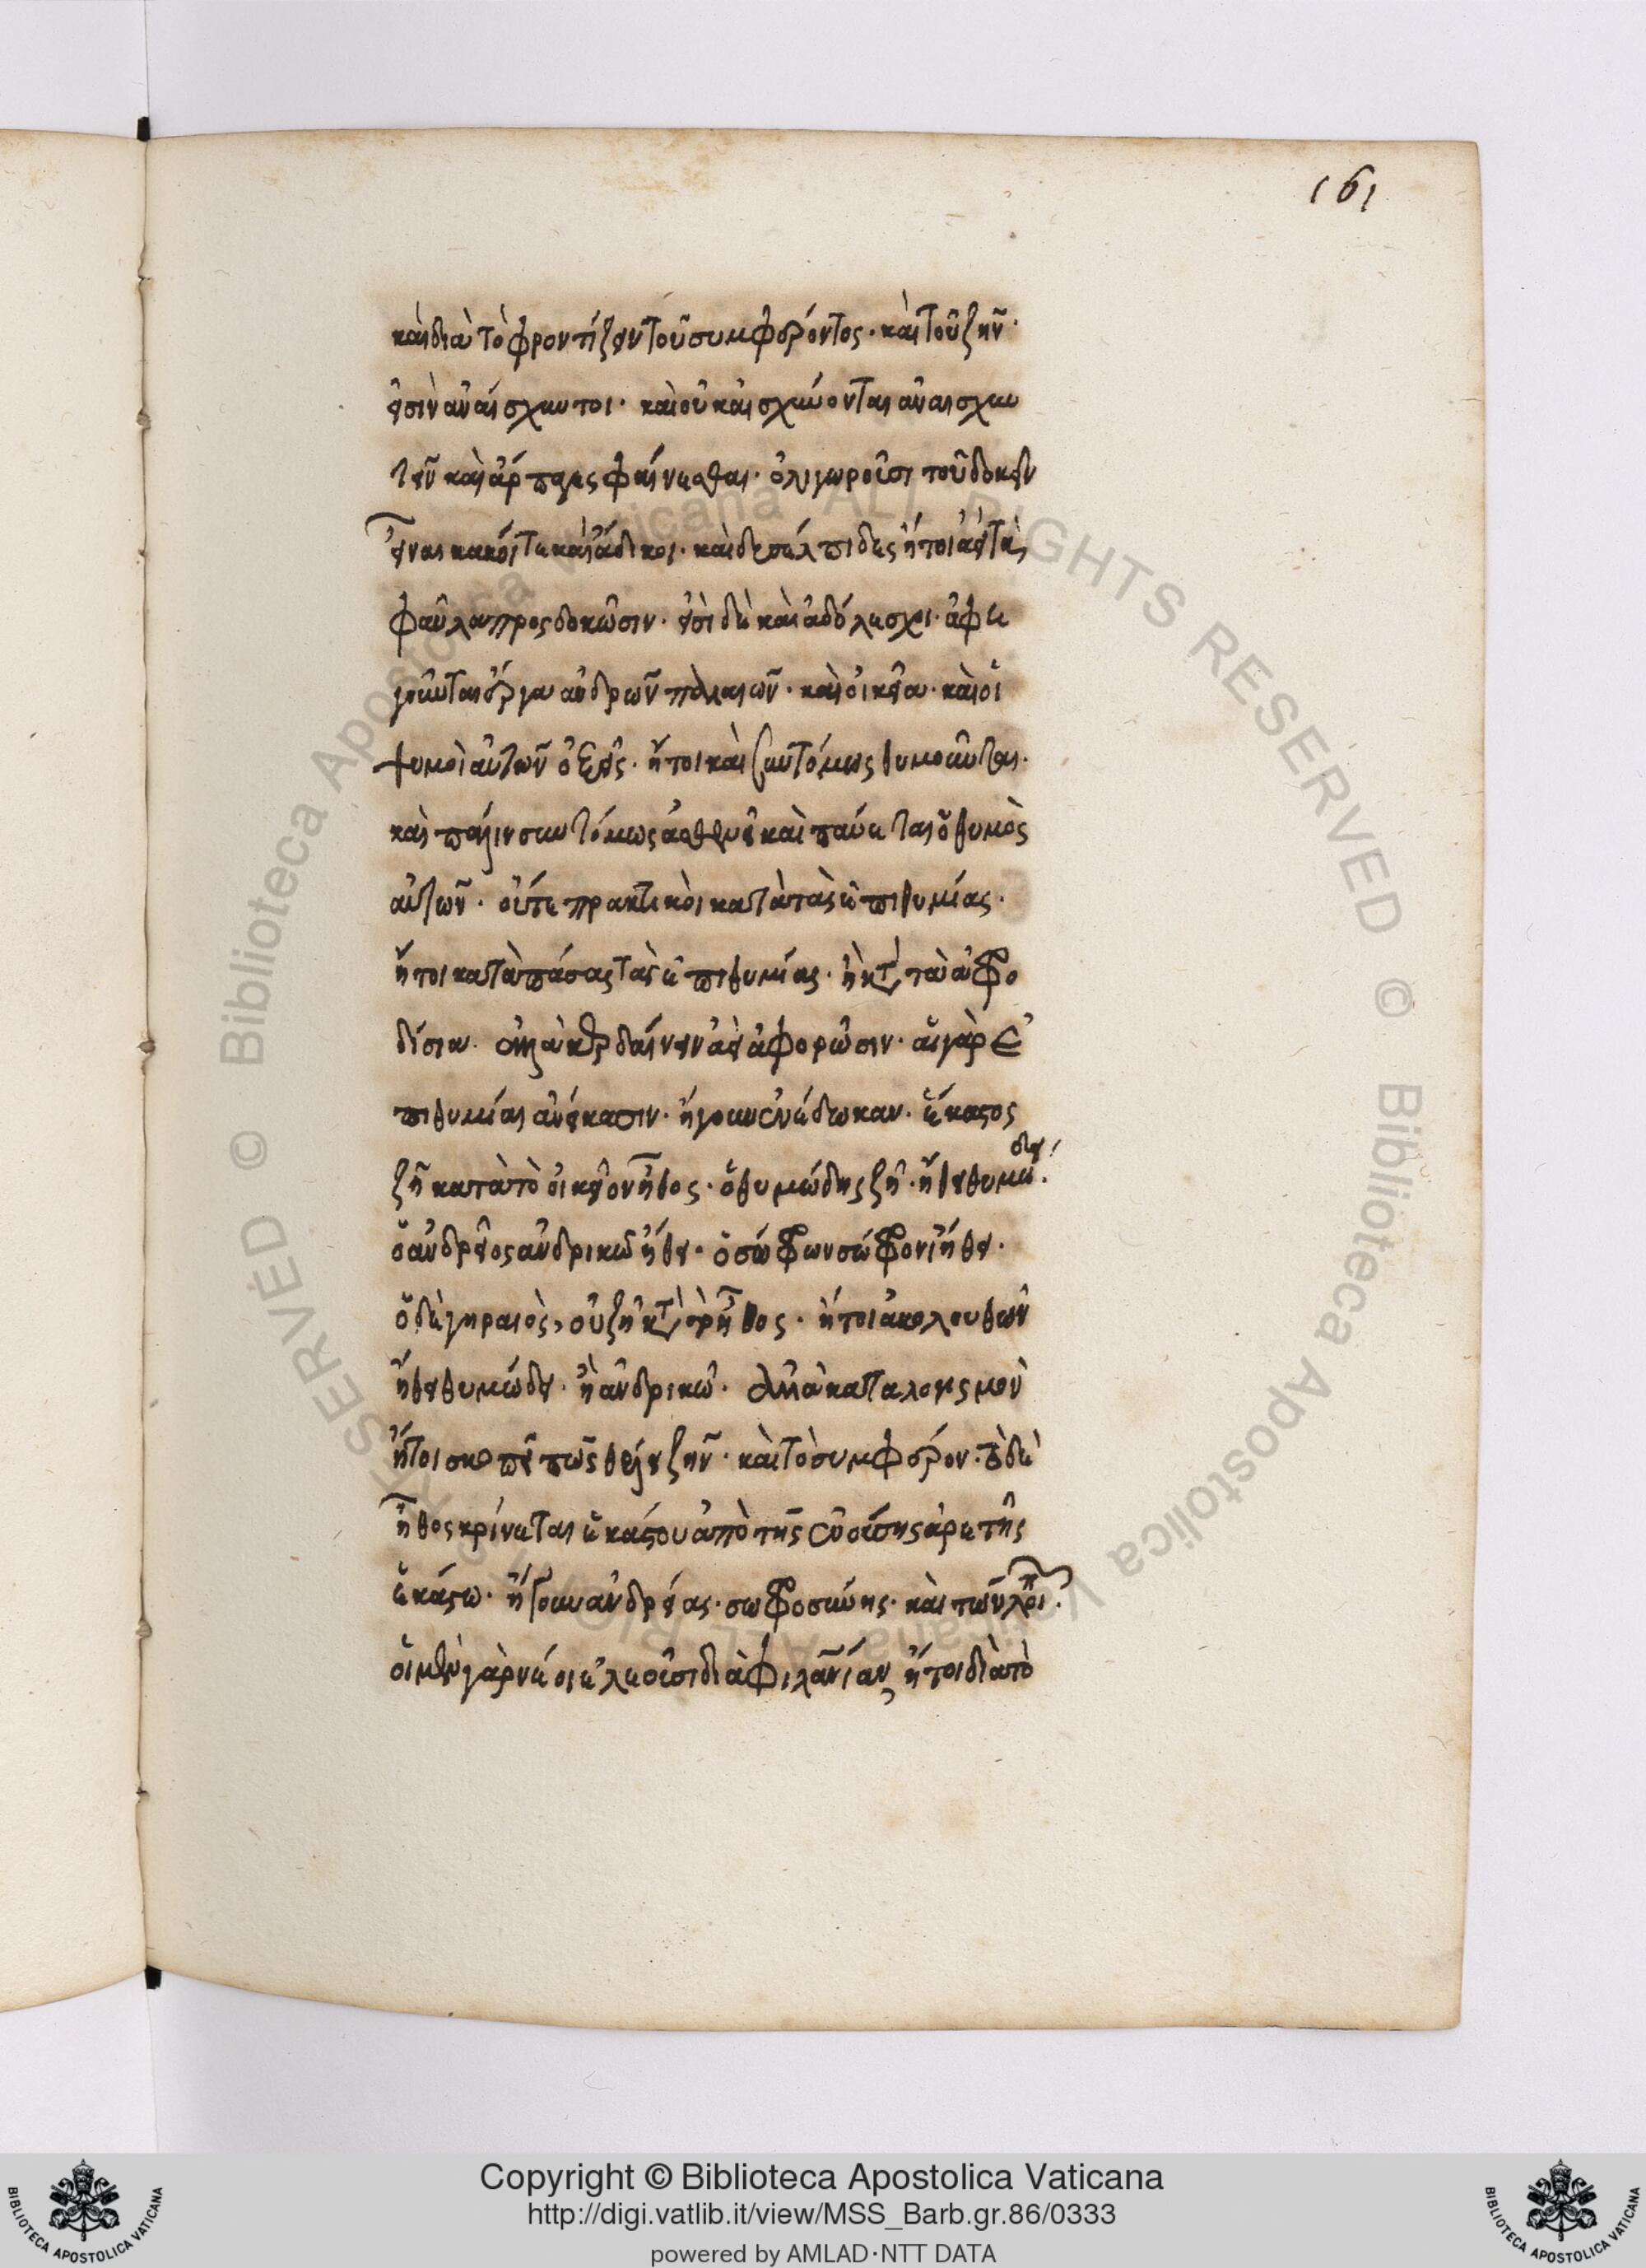 161
καὶ διὰ τὸ φροντίζειν τοῦ συμφέροντος· καὶ τοῦ ζῆν·
εἰσὶν ἀναίσχυντοι· καὶ οὐκ αἰσχύνονται ἀναισχυν
τεῖν καὶ ἅρπαγες φαίνεσθαι· ὀλιγωροῦσι τοῦ δοκεῖν
εἶναι κακοί τε καὶ ἄδικοι· καὶ δυσέλπιδες ἤτοι ἀεὶ τὰ
φαῦλα προσδοκῶσιν· εἰσὶ δὲ καὶ ἀδόλεσχοι· ἀφη
γοῦνται ἔργα ἀνδρῶν παλαιῶν· καὶ οἰκεῖα· καὶ οἱ
θυμοὶ αὐτῶν ὀξεῖς· ἤτοι καὶ συντόμως θυμοῦνται·
καὶ πάλιν συντόμως ἀσθενεῖ καὶ παύεται ὁ θυμὸς
αὐτῶν· οὔτε πρακτικοὶ κατὰ τὰς ἐπιθυμίας·
ἤτοι κατὰ πάσας τὰς ἐπιθυμίας· ἢ κατὰ τὰ ἀφρο
δίσια· ἀλλὰ κερδαίνειν ἀεὶ ἀφορῶσιν· αἱ γὰρ ἐ
πιθυμίαι ἀνείκασιν· ἤγουν ἐνέδωκαν· ἕκαστος
ζῆ κατὰ τὸ οἰκεῖον ἦθος· ὁ θυμώδης ζῆ· ἤθει θυμώδει·
ὁ ἀνδρεῖος ἀνδρικῶ ἤθει· ὁ σώφρων σώφρονι ἤθει·
ὁ δὲ γηραιὸς, οὐ ζῆ κατὰ τὸ ἦθος· ἤτοι ἀκολουθῶν
ἤθει θυμώδει· ἢ ἀνδρικῶ· ἀλλὰ κατὰ λογισμὸν
ἤτοι σκοπεῖ πῶς θέλει ζῆν· καὶ τὸ συμφέρον· τὸ δὲ
ἦθος κρίνεται ἑκάστου ἀπὸ τῆς ἐνούσης ἀρετῆς
ἑκάστω· ἤγουν ἀνδρείας· σωφροσύνης· καὶ τῶν λοιπῶν·
οἱ μὲν γὰρ νέοι ἐλεοῦσι διὰ φιλανθρωπίαν, ἤτοι διὰ τὸ
Copyright © Biblioteca Apostolica Vaticana
http://digi.vatlib.it/view/MSS_Barb.gr.86/0333
powered by AMLAD·NTT DATA